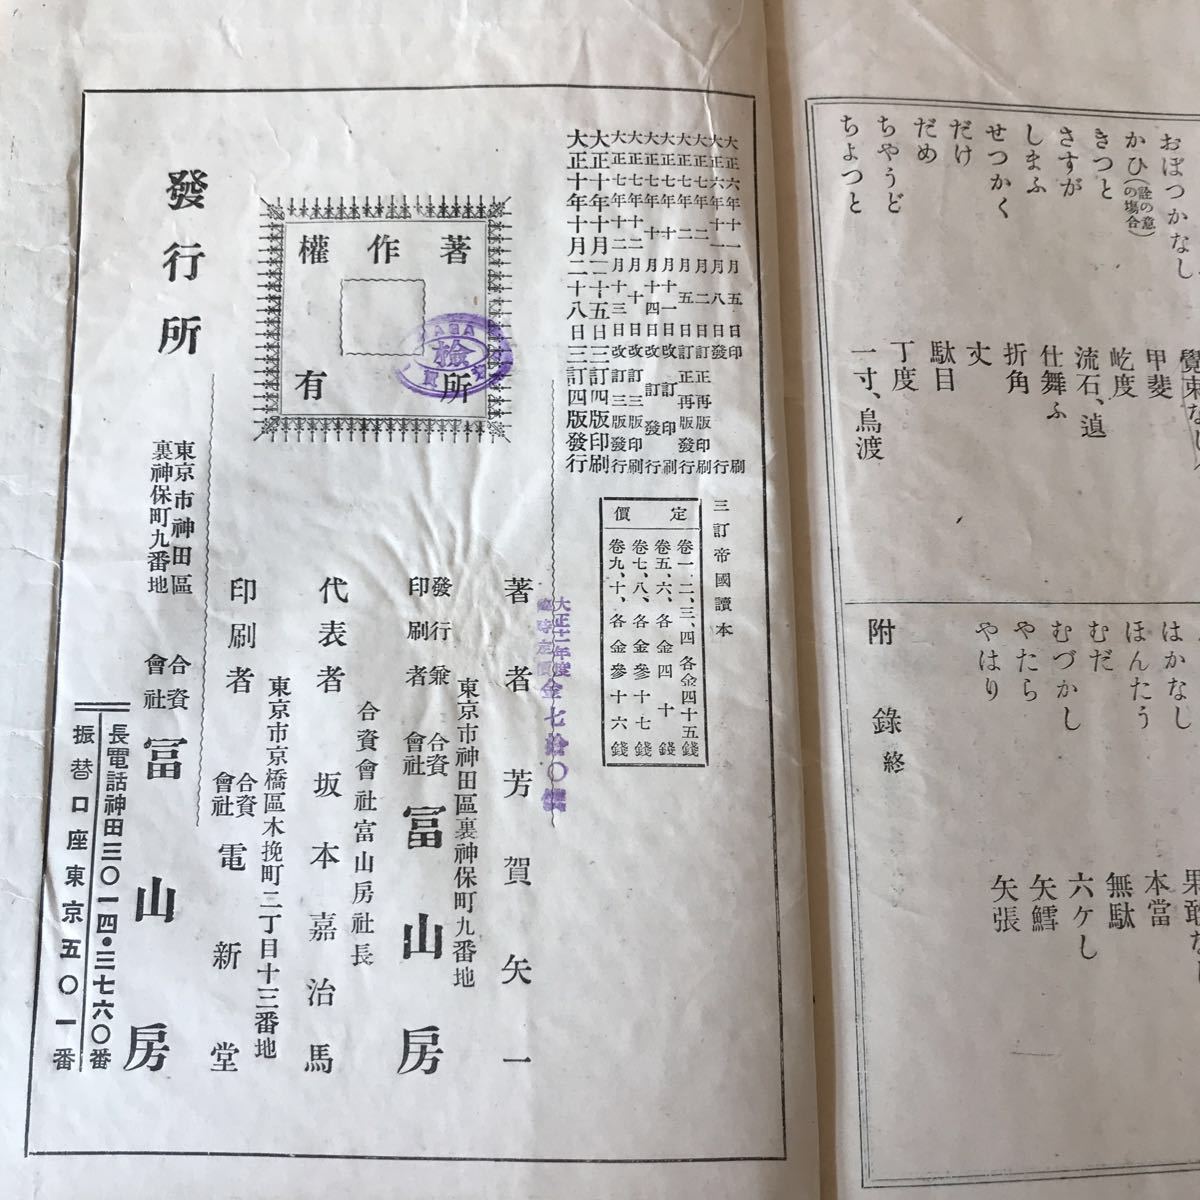 おぼつかなし
かひ(詮の意の場合)
きつと
さすが
しまふ
せつかく
だけ
だめ
ちやうど
ちよつと
甲斐
屹度
流石、遉
仕舞ふ
折角
丈
駄目
丁度
一寸、鳥渡
はかなし
ほんたう
むだ
むづかし
やたら
やはり
本當
無駄
六ケし
矢鱈
矢張
附錄終
大正六年十一月五日印刷
大正六年十一月八日發行
大正七年二月二日訂正再版印刷
大正七年二月五日訂正再版發行
大正七年十月十一日改訂印刷
大正七年十月十四日改訂發行
大正七年十二月十日改訂三版印刷
大正七年十二月十三日改訂三版發行
大正十年十月二十五日三訂四版印刷
大正十年十月二十八日三訂四版發行
三訂帝國讀本
定價
卷一、二、三、四 各金四十五錢
卷五、六、各金四十錢
卷七、八、各金參十七錢
卷九、十、各金參十六錢
著作權所有
檢
大正十一年度
臨時定價金七拾〇錢
著者 芳賀矢一
東京市神田區裏神保町九番地
發行兼印刷者 合資會社 冨山房
合資會社富山房社長
代表者 坂本嘉治馬
東京市京橋區木挽町二丁目十三番地
印刷者 合資會社 電新堂
發行所
東京市神田區裏神保町九番地
合資會社 冨山房
長電話神田三〇一四・三七六〇番
振替口座東京五〇一番